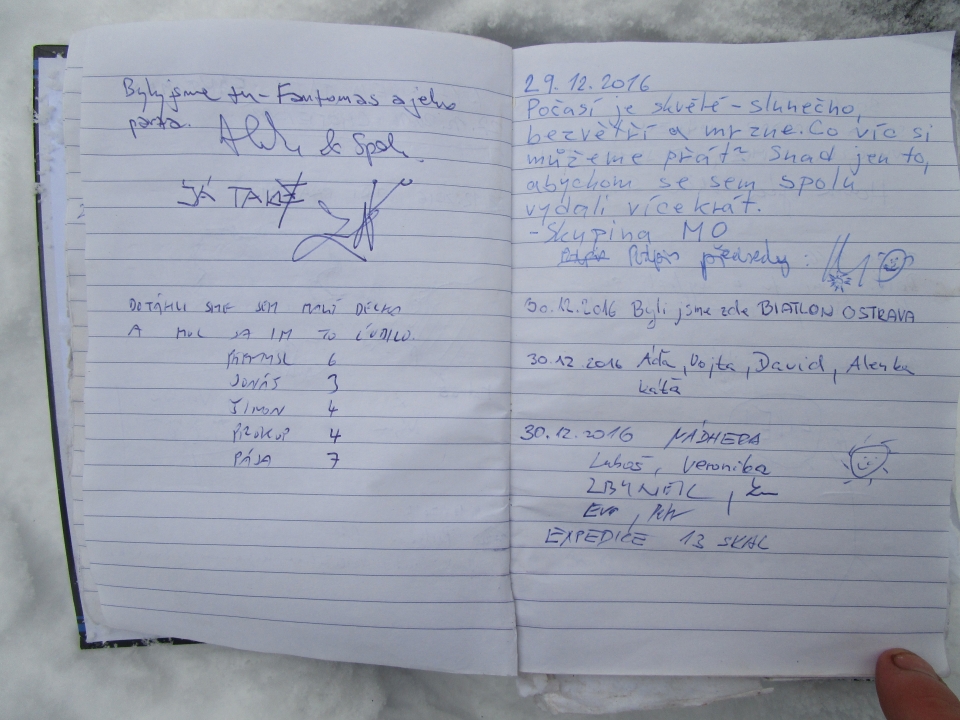 Byly jsme tu - Fantomas a jeho
parta.
& Spol.
JÁ TAKÉ
DOTÁHLI SME SEM MALÍ DĚCKA
A MOC SA IM TO LÚBILO.
PŘEMYSL 6
JONÁŠ 3
ŠIMON 4
PROKOP 4
PÁJA 7
29.12.2016
Počasí je skvělé - slunečno,
bezvětří a mrzne. Co víc si
můžeme přát? Snad jen to,
abychom se sem spolu
vydali vícekrát.
- Skupina MO
Podpis předsedy:
30.12.2016 Byli jsme zde BIATLON OSTRAVA
30.12 2016 Áďa, Vojta, David, Alenka
Kátă
30.12.2016 NÁDHERA
Luboš, Veronika
ZBYNĚK,
Eva, Petr
EXPEDICE 13 SKAL